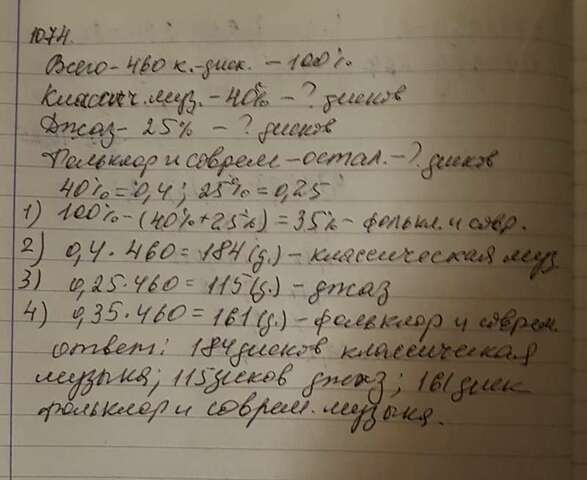 1074.
Всего - 460 к.-диск. - 100%
Классич. муз. - 40% - ? дисков
Джаз - 25% - ? дисков
Фольклор и соврем - остал. - ? дисков
40% = 0,4; 25% = 0,25
1) 100% - (40% + 25%) = 35% - фолькл. и совр.
2) 0,4 · 460 = 184 (д.) - классическая муз
3) 0,25 · 460 = 115 (д.) - джаз
4) 0,35 · 460 = 161 (д.) - фольклор и соврем.
ответ: 184 дисков классическая
музыка; 115 дисков джаз; 161 диск
фольклор и соврем. музыка.